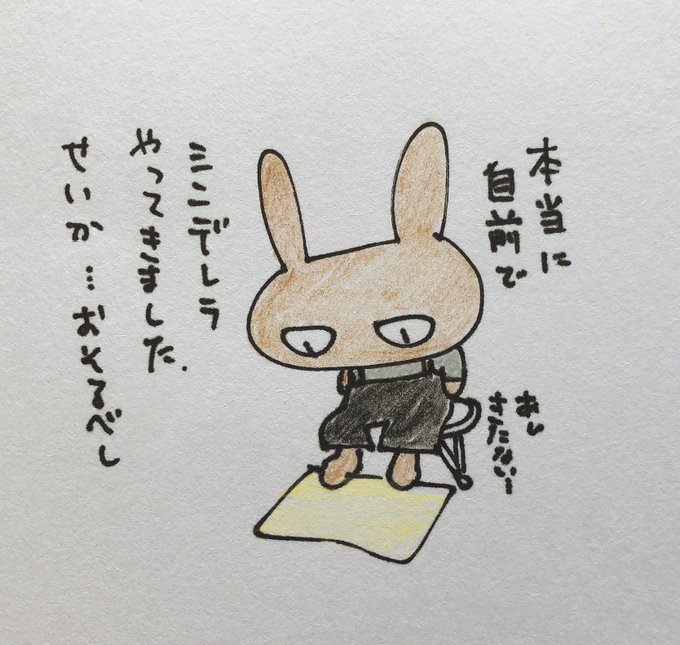 本当に
自前で
シンデレラ
やってきました.
せいか…おそるべし
あし
きたない…